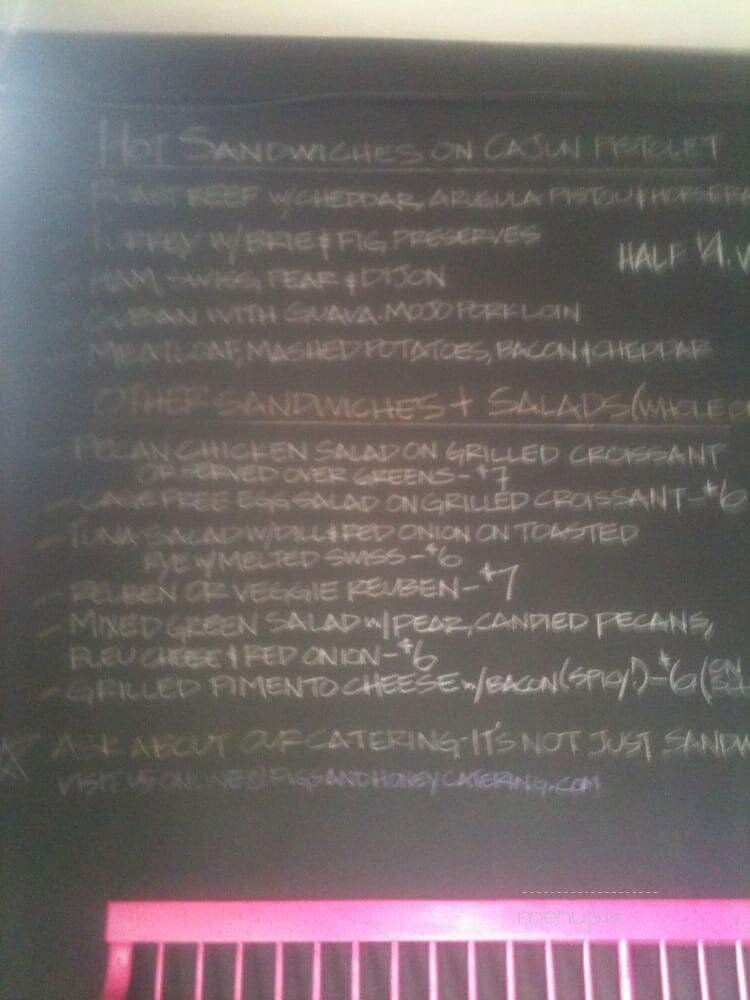 HOT SANDWICHES ON CAJUN PISTOLET
- ROAST BEEF W/CHEDDAR, ARUGULA PISTOU &
- TURKEY W/BRIE & FIG PRESERVES
HALF
- HAM, SWISS, PEAR & DIJON
- CUBAN WITH GUAVA. MOJO PORK LOIN
- MEATLOAF, MASHED POTATOES, BACON & CHEDDAR
OTHER SANDWICHES + SALADS (WHOLE
- PECAN CHICKEN SALAD ON GRILLED CROISSANT
OR SERVED OVER GREENS - $7
- CAGE FREE EGG SALAD ON GRILLED CROISSANT - $6
- TUNA SALAD W/DILL & RED ONION ON TOASTED
RYE W/MELTED SWISS - $6
- REUBEN OR VEGGIE REUBEN - $7
- MIXED GREEN SALAD W/PEAR, CANDIED PECANS,
BLEU CHEESE & RED ONION - $6
- GRILLED PIMENTO CHEESE W/BACON (SPICY!) - $6 (ON
ASK ABOUT OUR CATERING - IT'S NOT JUST SANDW
VISIT US ONLINE @ FIGSANDHONEYCATERING.COM